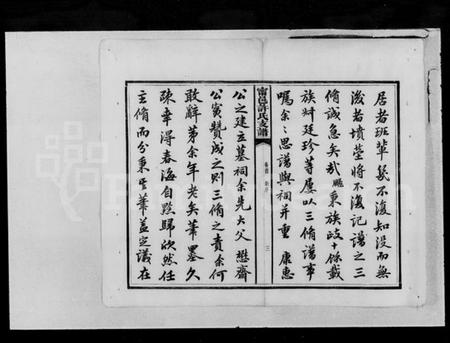 居者班輩幾不復知没而無
後者墳塋將不復記譜之三
脩誠急矣哉愚秉族政十餘載
族叔廷珍等屢以三脩譜事
囑余余思譜與祠并重康惠
甯邑許氏支譜
卷首
三
公之建立墓祠余先大父懋齋
公實贊成之則三脩之責余何
敢辭第余年老矣筆墨久
疎幸潯春海自黙歸欣然任
主脩而分秉筆葢定議在